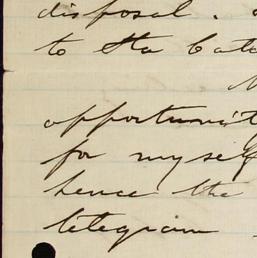 disposal.
to Sta Cata
opportunit
for myself
hence the
telegram